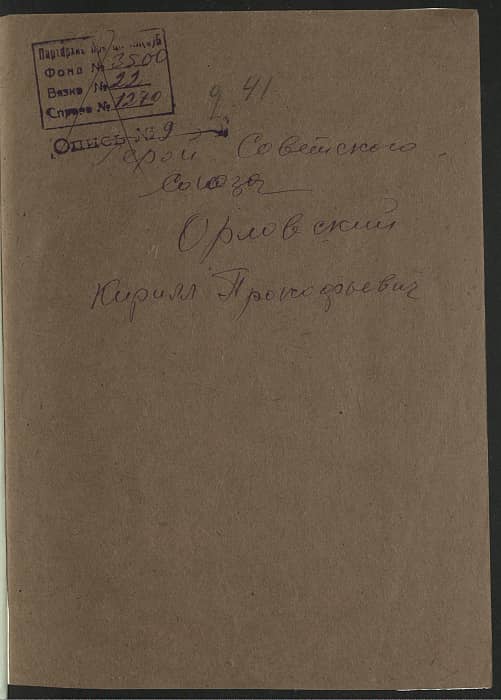 Партархив
Фонд № 3500
Вязка № 22
Справа № 1270
Опись № 9
2 41
Герой Советского
Союза
Орловский
Кирилл Прокофьевич